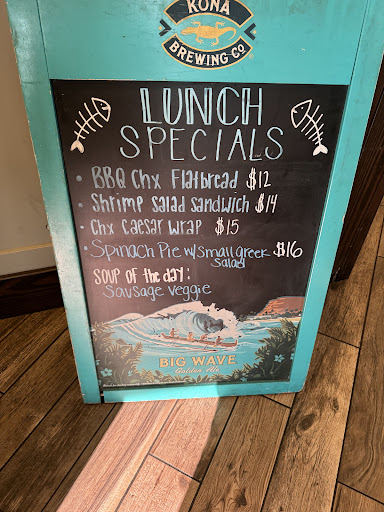 KONA
BREWING CO.
LUNCH
SPECIALS
• BBQ Chx Flatbread $12
• Shrimp Salad Sandwich $14
• Chx Caesar Wrap $15
• Spinach Pie w/ small greek $16
Salad
Soup of the day:
Sausage Veggie
BIG WAVE
Golden Ale